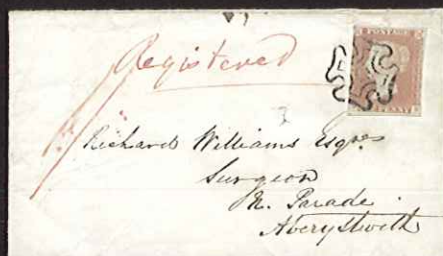 Registered
POSTAGE
PENNY
Richard Williams Esqre
Surgeon
N. Parade
Aberystwith